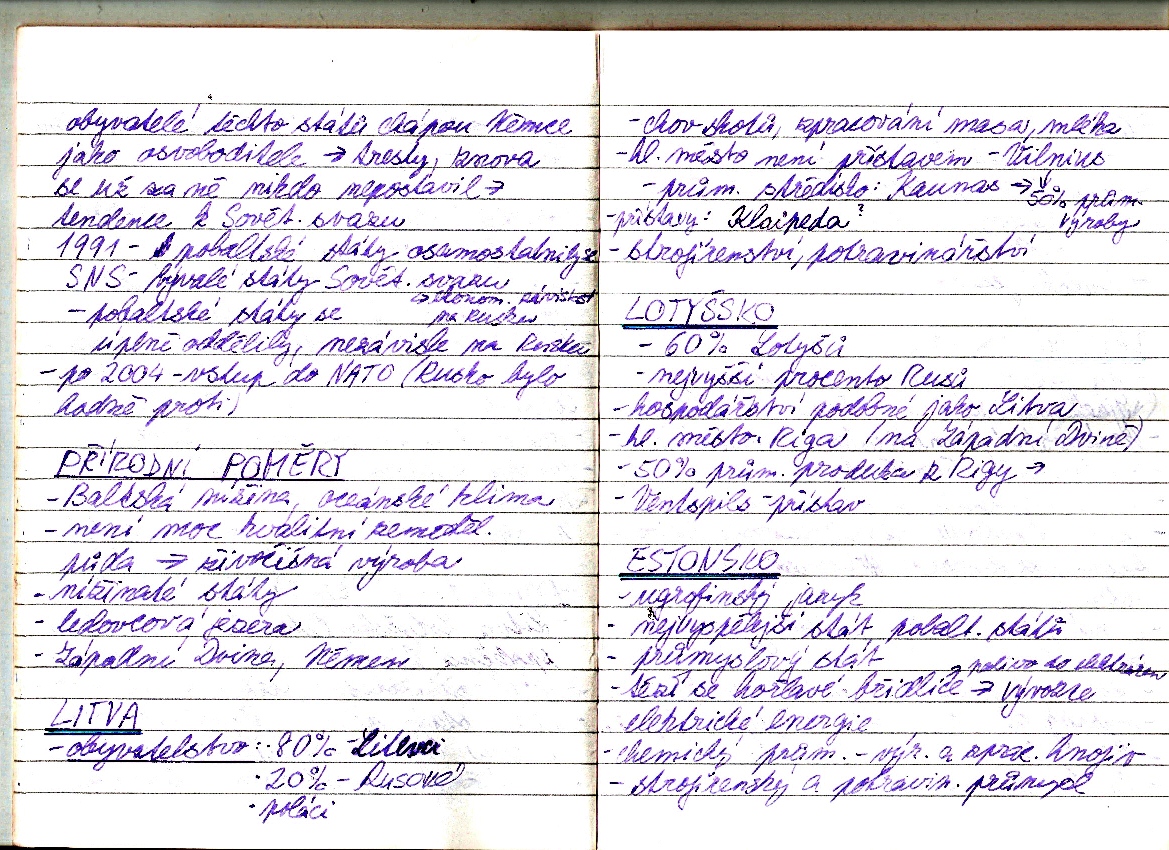 obyvatelé těchto států chápou Němce
jako osvoboditele → tresty, znova
se už za ně nikdo nepostavil →
tendence k Sovět. svazu
1991 - pobaltské státy osamostatnily se
SNS - bývalé státy Sovět. svazu
↳ ekonom. závislost
na Rusku
- pobaltské státy se
úplně oddělily, nezávisle na Rusku
- po 2004 - vstup do NATO (Rusko bylo
hodně proti)
PŘÍRODNÍ POMĚRY
- Baltská nížina, oceánské klima
- není moc kvalitní zeměděl.
půda → živočišná výroba
- nížinaté státy
- ledovcová jezera
- Západní Dvina, Němen
LITVA
- obyvatelstvo: 80% Litevci
· 20% - Rusové
· poláci
- chov skotu, zpracování masa, mléka
- hl. město není přístavem - Vilnius
- prům. středisko: Kaunas → 50% prům.
výroby
- přístavy: Klaipeda?
- strojírenství, potravinářství
LOTYŠSKO
- 60% Lotyšů
- nejvyšší procento Rusů
- hospodářství podobné jako Litva
- hl. město. Riga (na Západní Dvině)
- 50% prům. produkce z Rigy →
- Ventspils - přístav
ESTONSKO
- ugrofinský jazyk
- nejvyspělejší stát pobalt. států
- průmyslový stát
→ palivo do elektráren
- těží se hořlavé břidlice → vývozce
elektrické energie
- chemický prům. - výr. a zprac. hnojiv
- strojírenský a potravin. průmysl